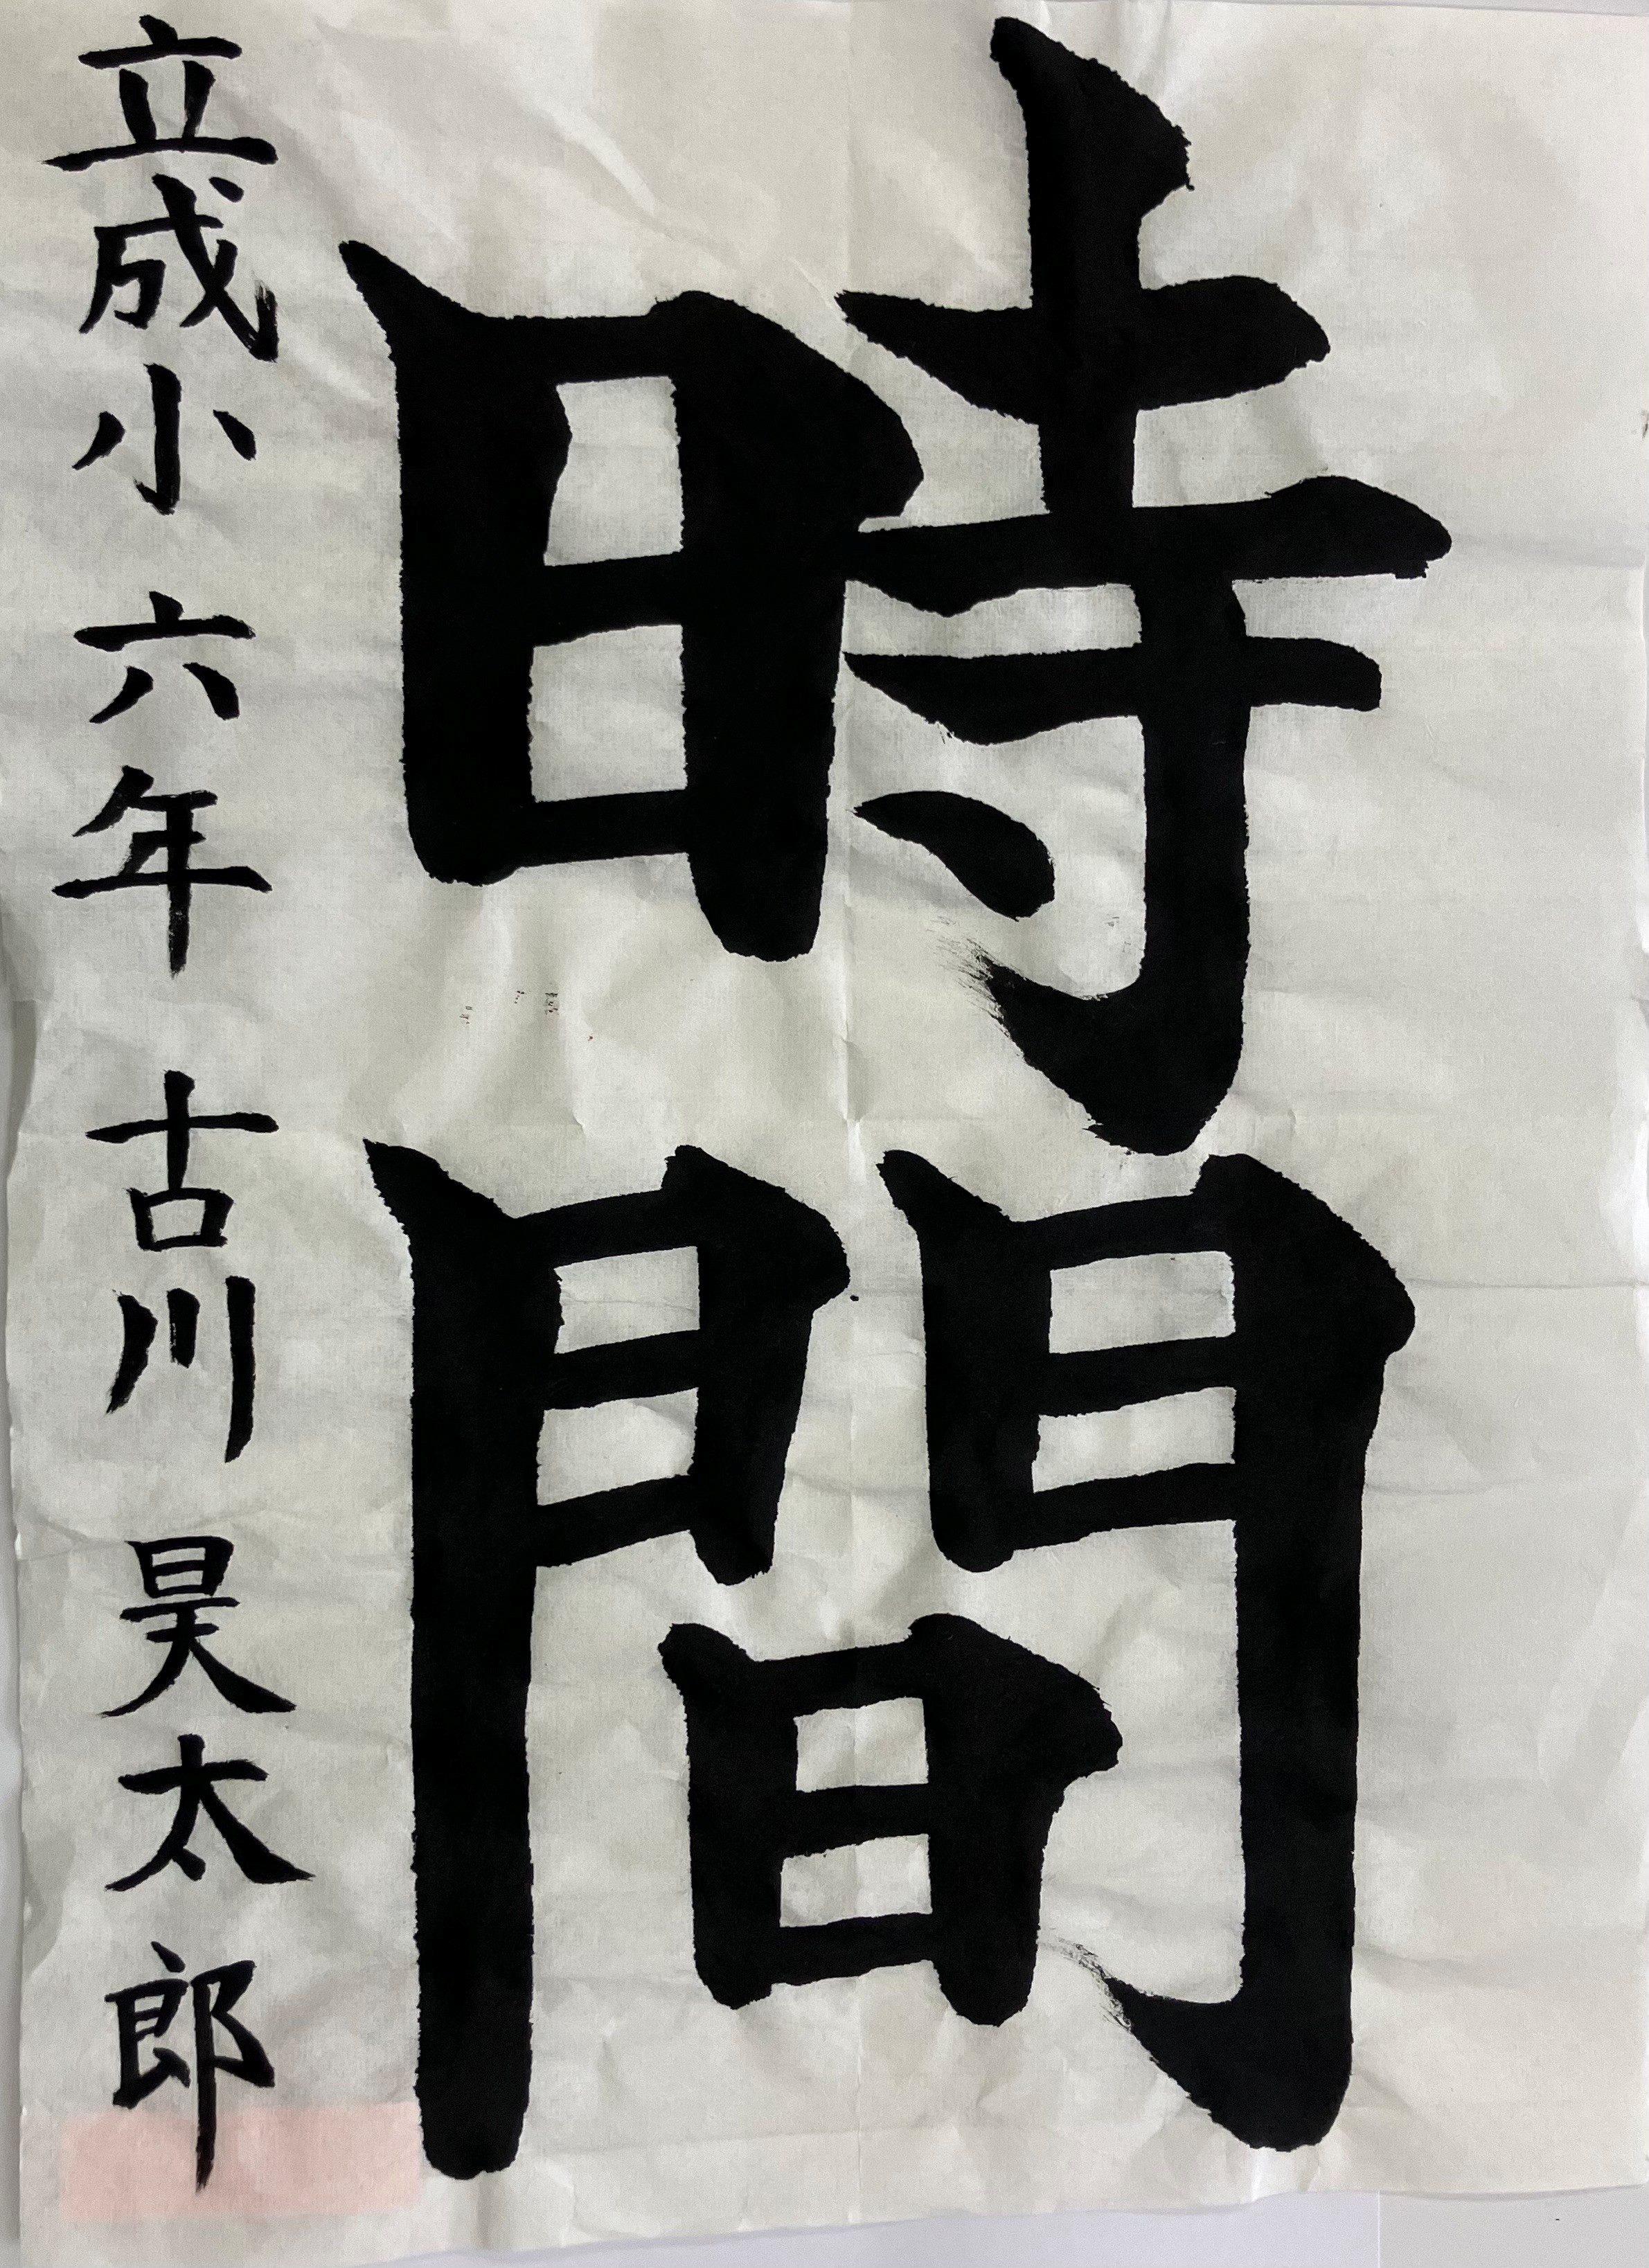 時間
立成小 六年 古川 昊太郎